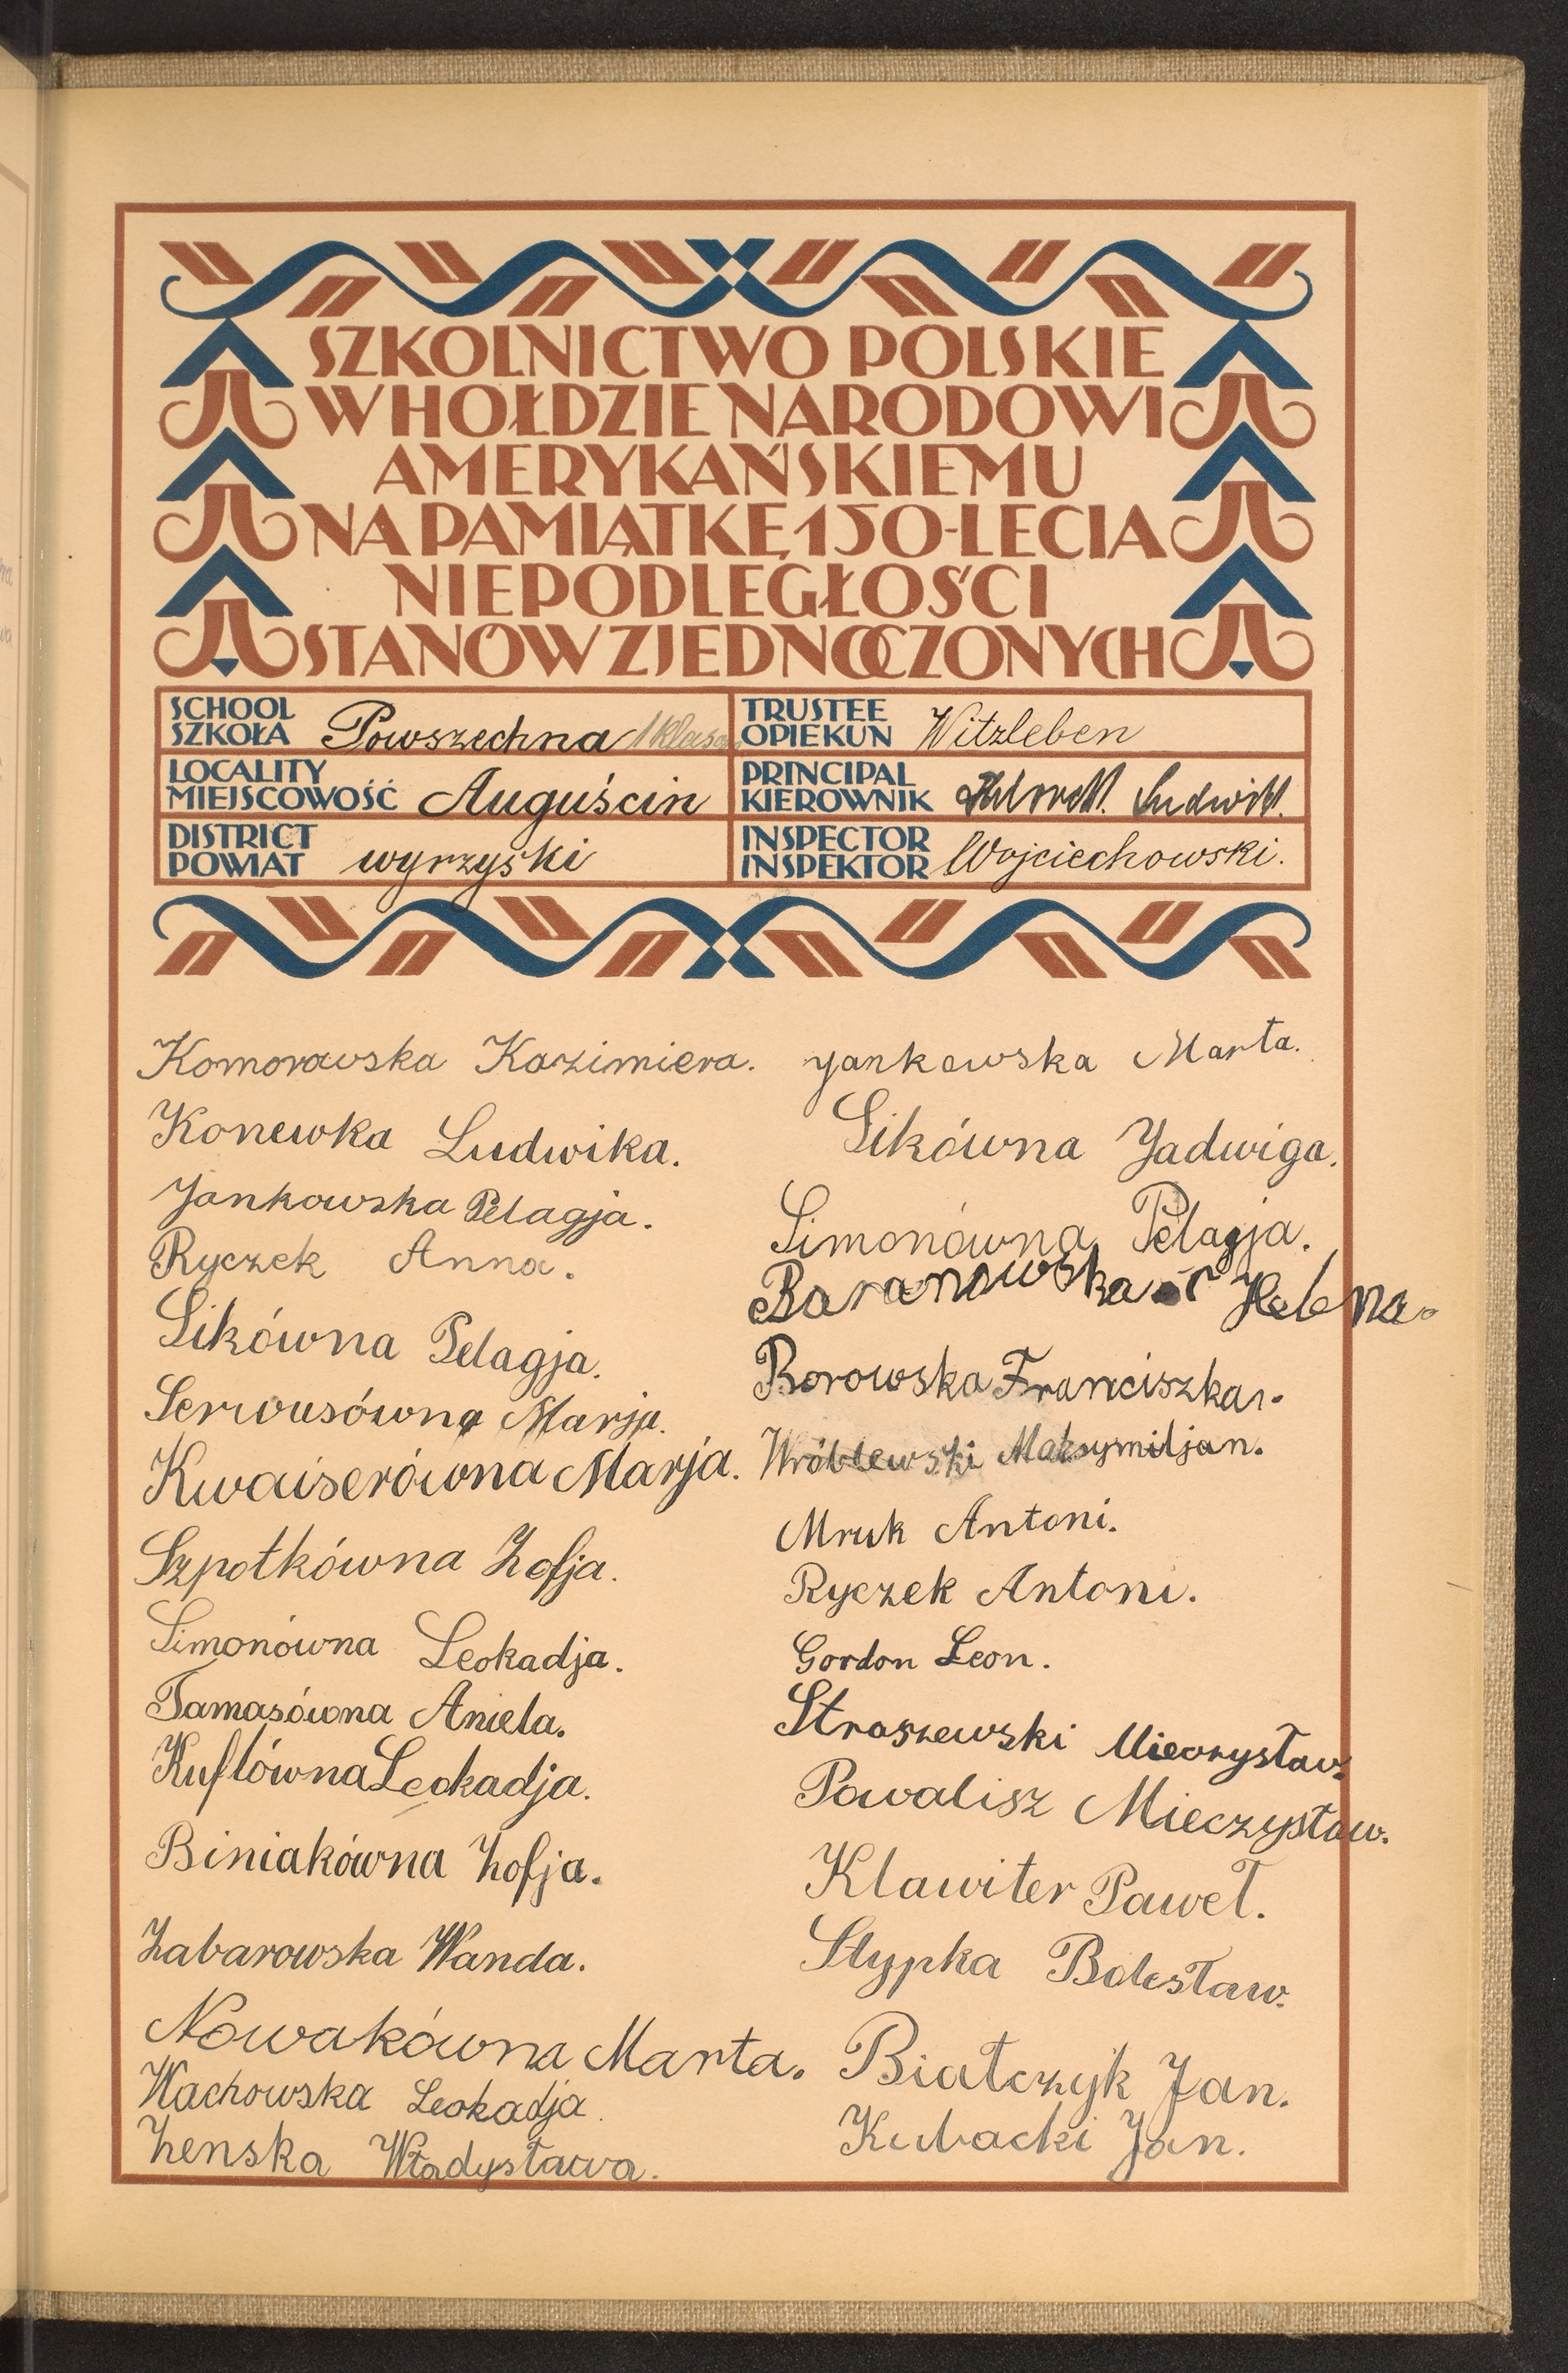 SZKOLNICTWO POLSKIE
W HOŁDZIE NARODOWI
AMERYKAŃSKIEMU
NA PAMIĄTKĘ 150-LECIA
NIEPODLEGŁOŚCI
STANÓW ZJEDNOCZONYCH
SCHOOL
SZKOŁA Powszechna 1 klasowa
TRUSTEE
OPIEKUN Witzleben
LOCALITY
MIEJSCOWOŚĆ Auguścin
PRINCIPAL
KIEROWNIK Ludwik
DISTRICT
POWIAT wyrzyski
INSPECTOR
INSPEKTOR Wojciechowski.
Komorowska Kazimiera.
Konewka Ludwika.
Jankowska Pelagja.
Ryczek Anna.
Sikówna Pelagja.
Serwusówna Marja.
Kwaiserówna Marja.
Szpotkówna Zofja.
Simonówna Leokadja.
Tamasówna Aniela.
Kuflówna Leokadja.
Biniakówna Zofja.
Zabarowska Wanda.
Nowakówna Marta.
Wachowska Leokadja.
Zenska Władysława.
Jankowska Marta.
Sikówna Jadwiga.
Simonówna Pelagja.
Baranowska Helena.
Borowska Franciszka.
Wróblewski Maksymiljan.
Mruk Antoni.
Ryczek Antoni.
Gordon Leon.
Straszewski Mieczysław.
Powalisz Mieczysław.
Klawiter Paweł.
Stypka Bolesław.
Białczyk Jan.
Kubacki Jan.